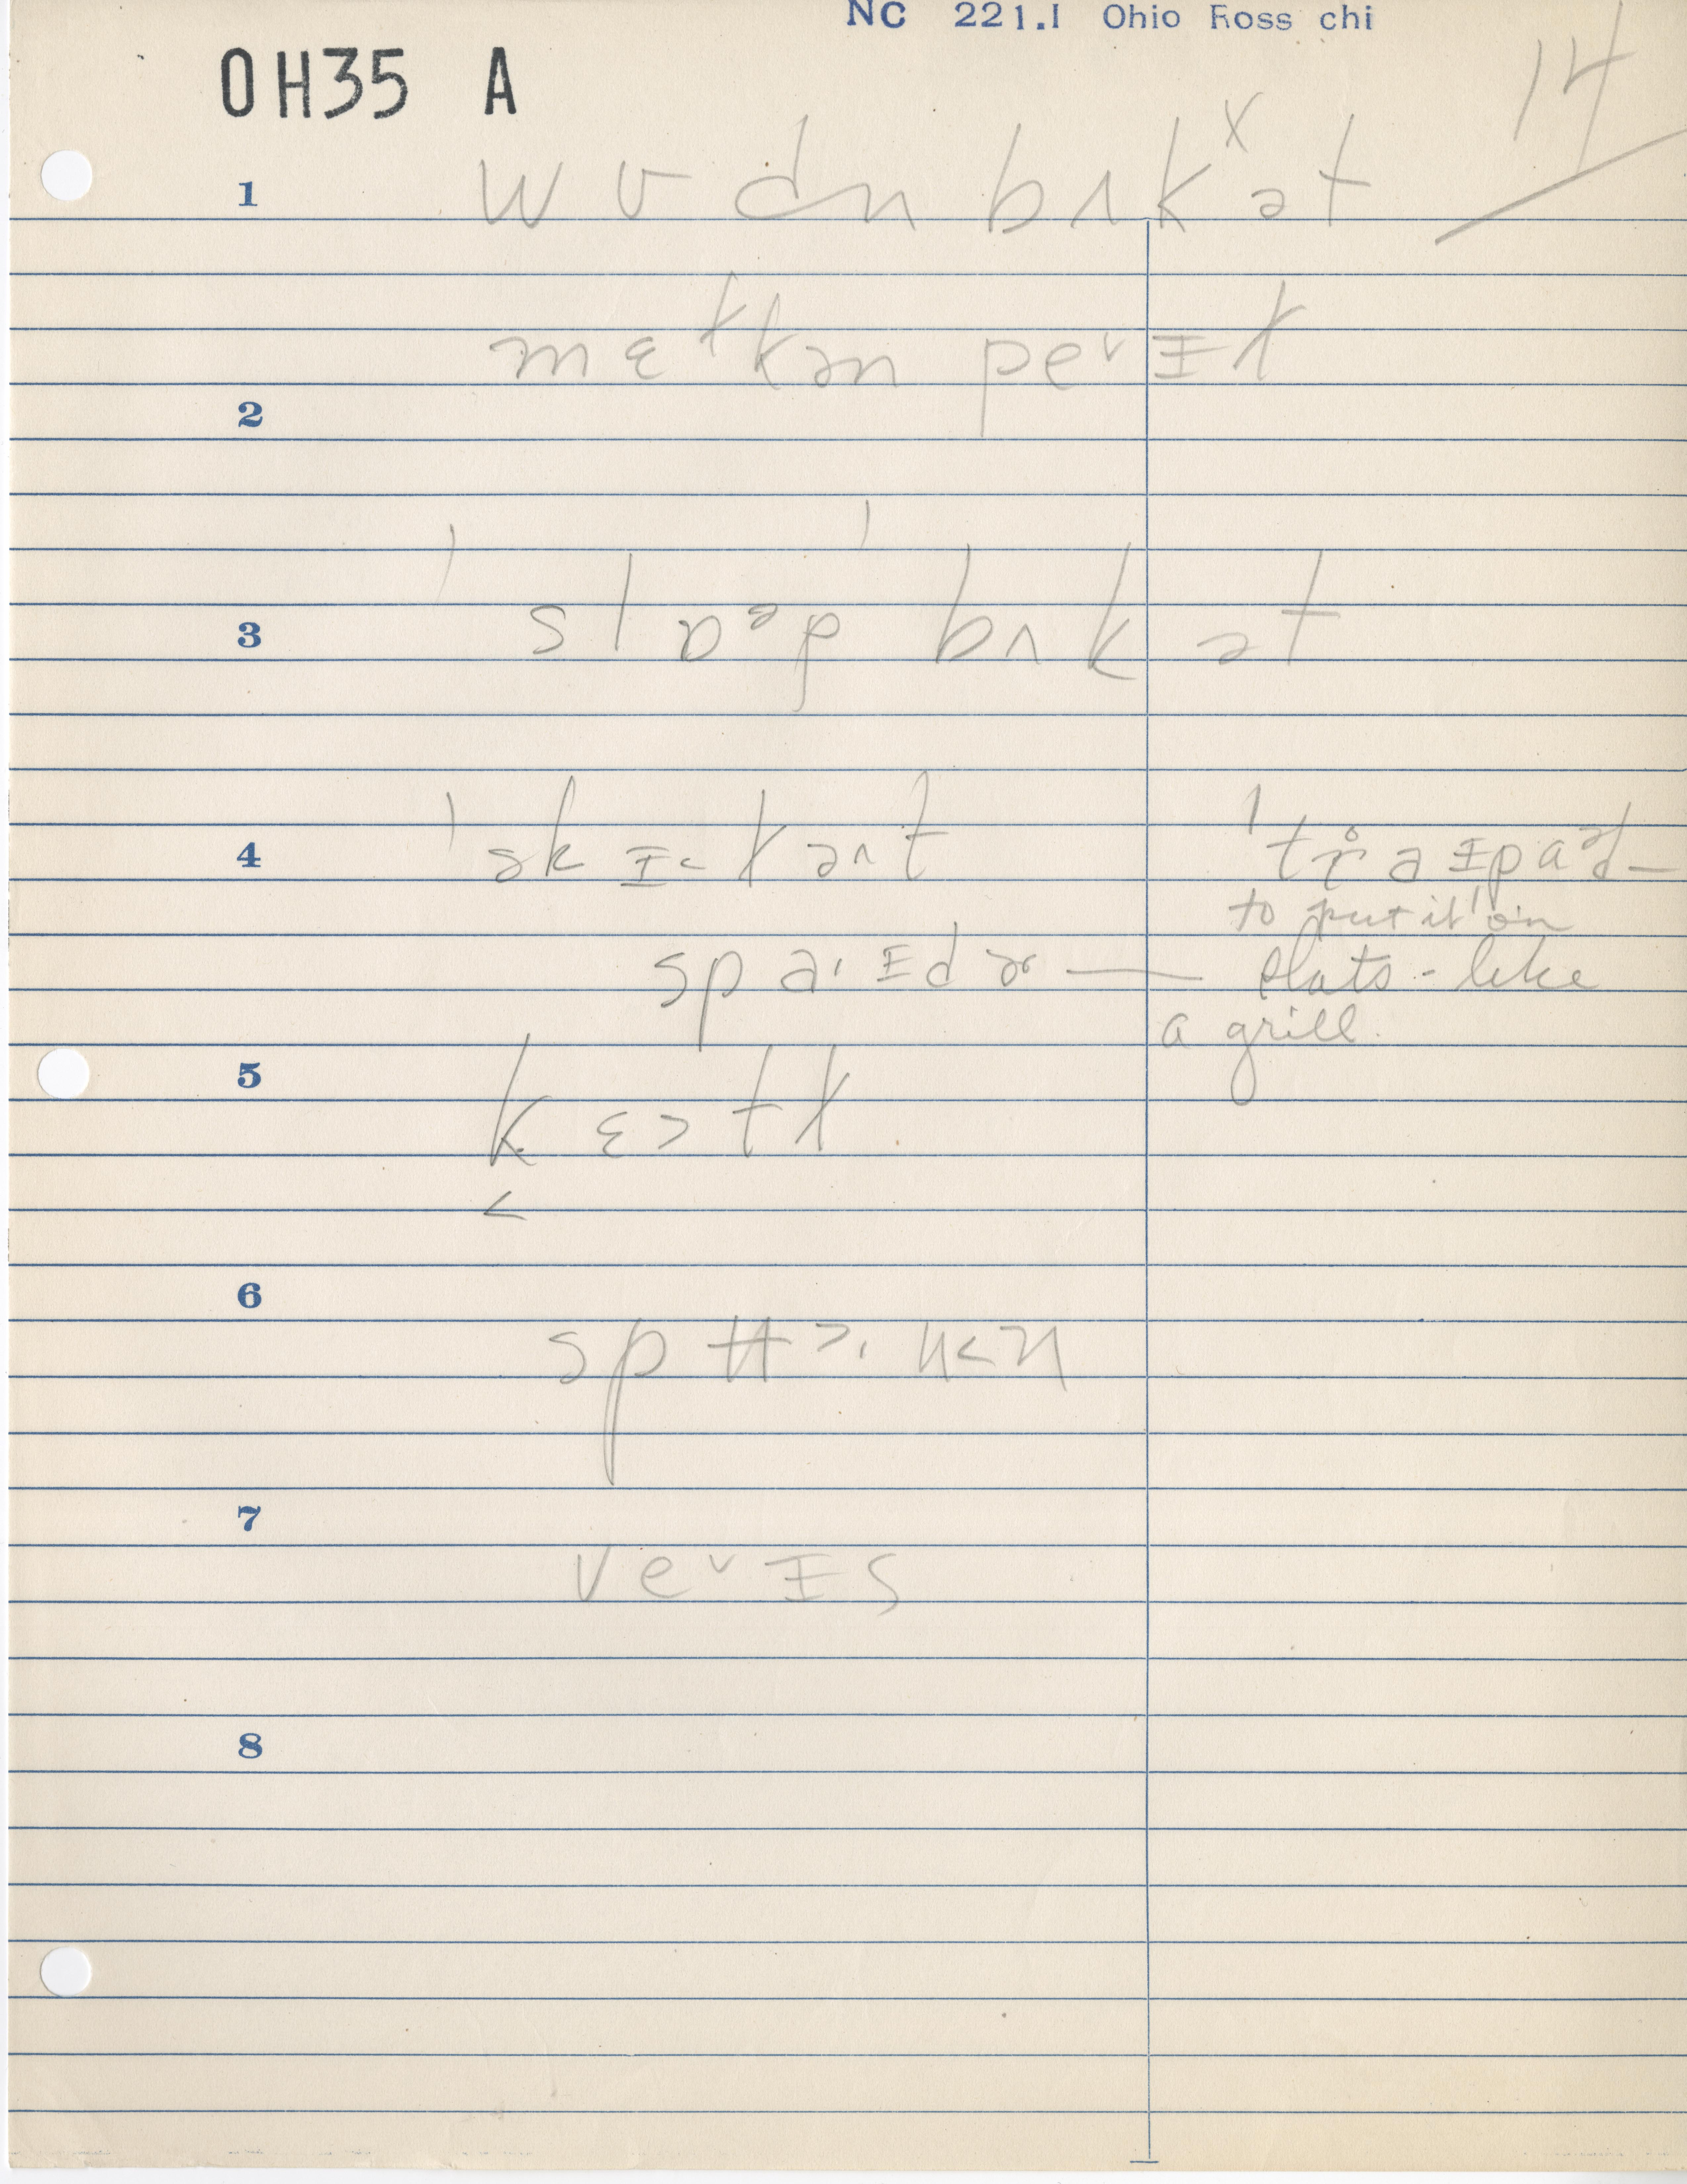 NC 221.1 Ohio Ross chi
OH35 A
14
1 wʊdn bʌkˣət
mɛᵗkən pe˅ɪt
2
3 ˈslɒᵊp ˈbʌkət
4 ˈsk ɪ˂ t ən t ˈtr̥aɪpɑᵊd—
to put it on
spaˈɪdɚ — slats - like
a grill.
5 kɛ˃tɫ
˂
6
spʉ˃ˈn˂n
7
ve˅ɪs
8